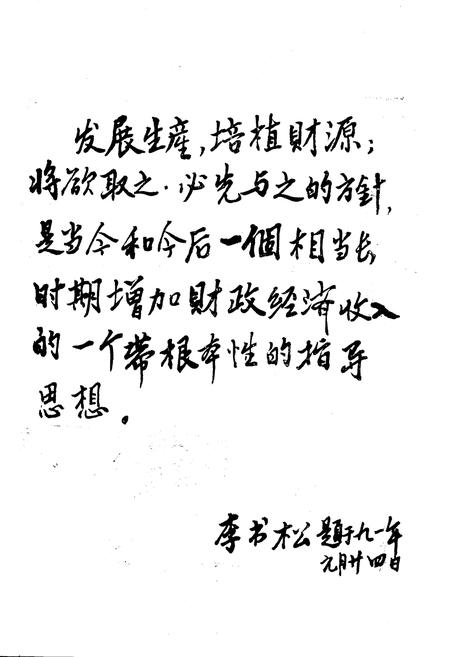 发展生產，培植財源；
将欲取之·必先与之的方針，
是当今和今后一個相当长
时期增加财政经济收入
的一个带根本性的指导
思想。
李书松题于九一年
元月廿四日